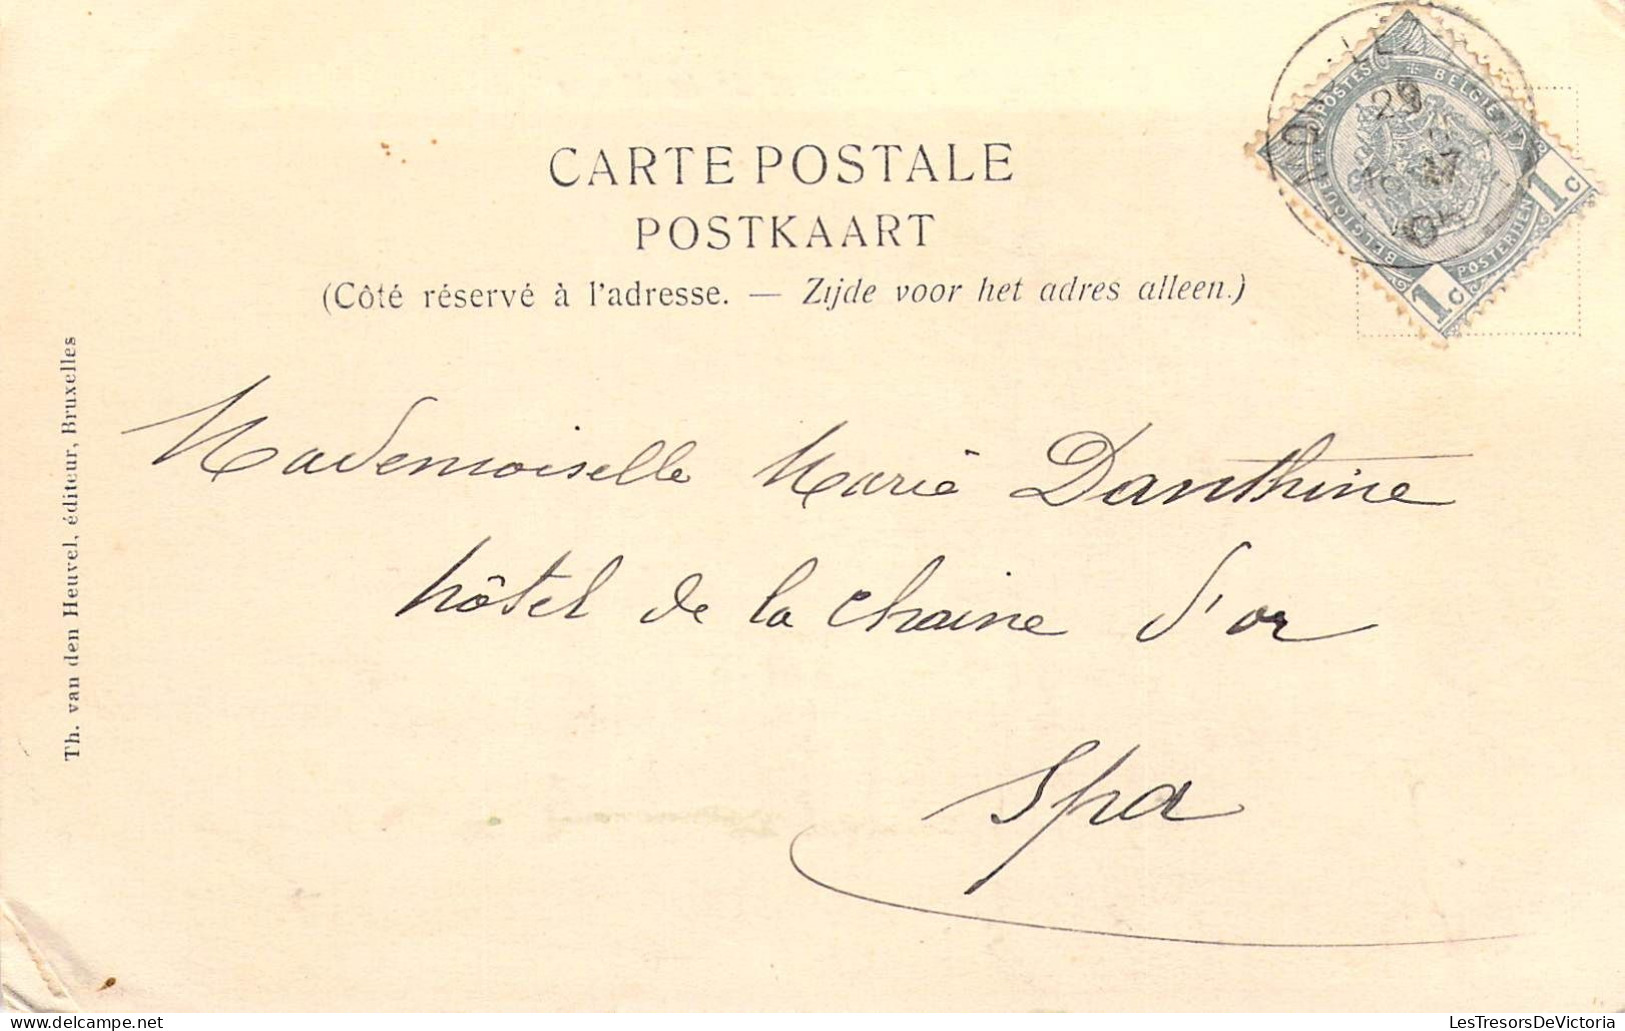 CARTE POSTALE
POSTKAART
(Côté réservé à l'adresse. — Zijde voor het adres alleen.)
POSTES BELGIË
BELGIQUE POSTERIJEN
1c
1c
29
17
Th. van den Heuvel, éditeur, Bruxelles
Mademoiselle Marie Danthine
hôtel de la Chaine d'or
Spa
LesTresorsDeVictoria